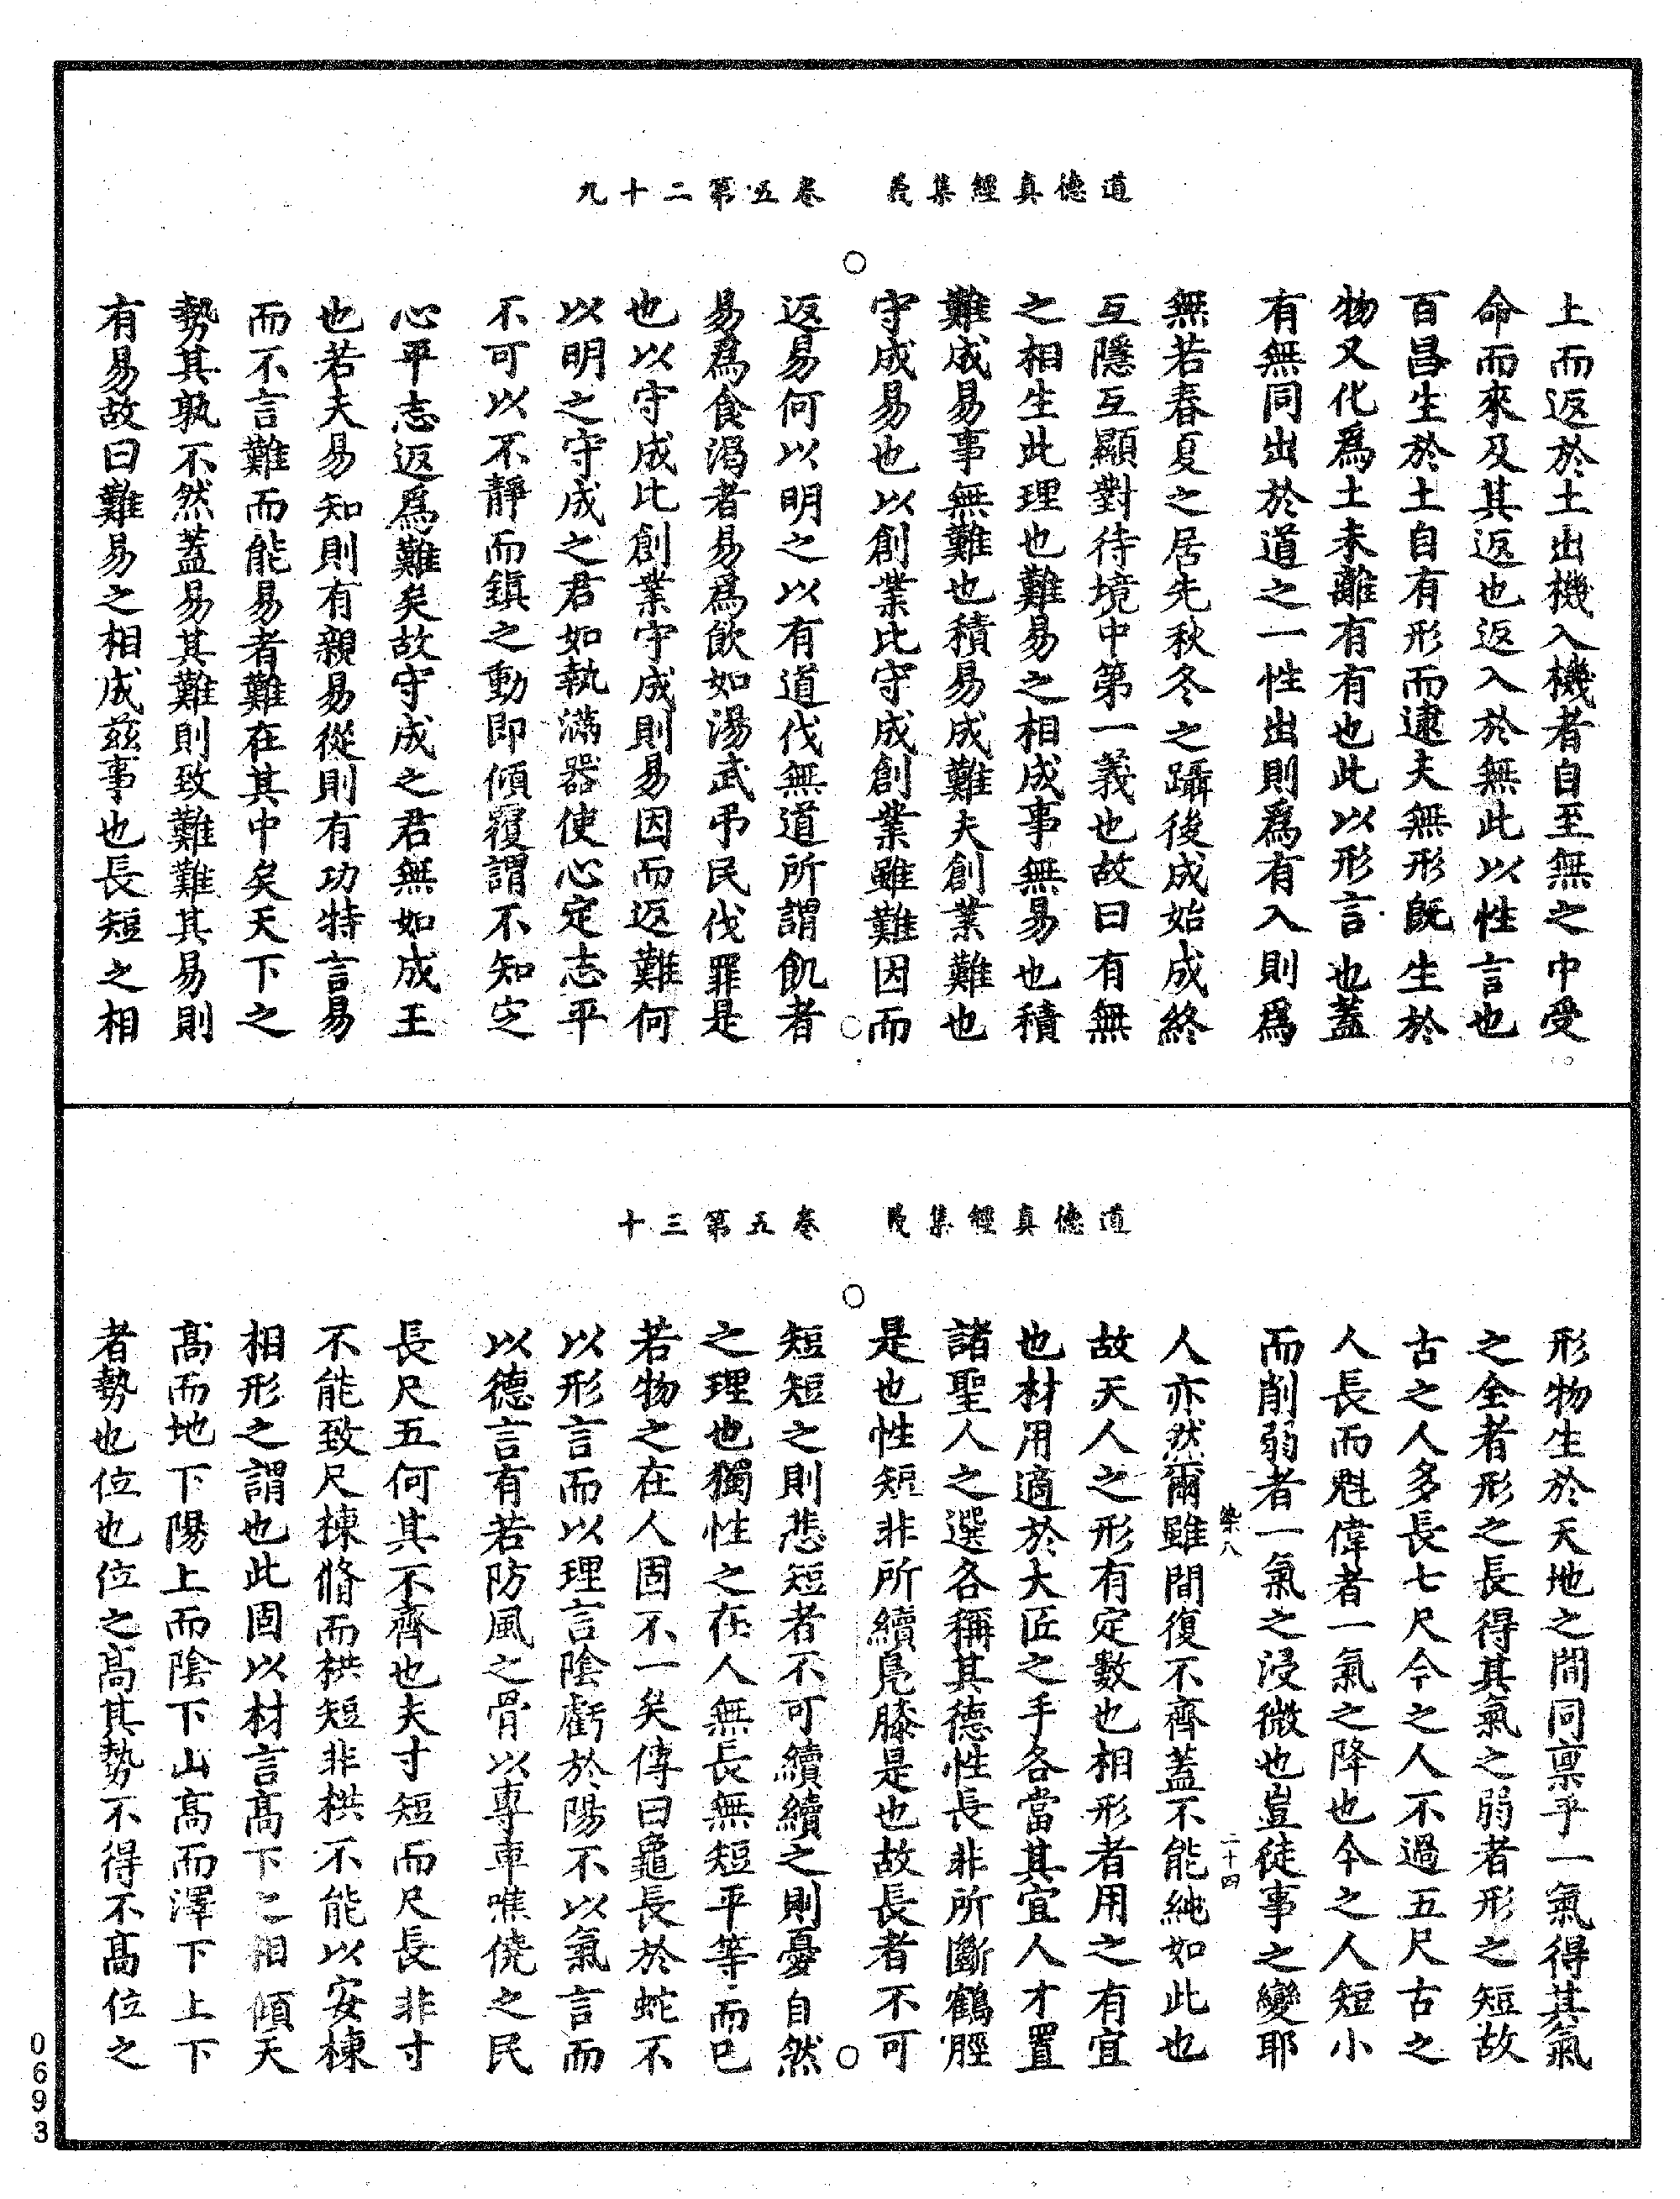 道德真經集義　卷五第二十九
上而返於土出機入機者自至無之中受
命而來及其返也返入於無此以性言也
百昌生於土自有形而逮夫無形旣生於
物又化爲土未離有有也此以形言也蓋
有無同出於道之一性出則爲有入則爲
無若春夏之居先秋冬之躡後成始成終
互隱互顯對待境中第一義也故曰有無
之相生此理也難易之相成事無易也積
難成易事無難也積易成難夫創業難也
守成易也以創業比守成創業雖難因而
返易何以明之以有道伐無道所謂飢者
易爲食渴者易爲飲如湯武弔民伐罪是
也以守成比創業守成則易因而返難何
以明之守成之君如執滿器使心定志平
不可以不靜而鎭之動即傾覆謂不知定
心平志返爲難矣故守成之君無如成王
也若夫易知則有親易從則有功特言易
而不言難而能易者難在其中矣天下之
勢其孰不然蓋易其難則致難難其易則
有易故曰難易之相成玆事也長短之相
道德真經集義　卷五第三十
形物生於天地之間同禀乎一氣得其氣
之全者形之長得其氣之弱者形之短故
古之人多長七尺今之人不過五尺古之
人長而魁偉者一氣之降也今之人短小
而削弱者一氣之浸微也豈徒事之變耶
染八　二十四
人亦然爾雖間復不齊蓋不能純如此也
故天人之形有定數也相形者用之有宜
也材用適於大匠之手各當其宜人才置
諸聖人之選各稱其德性長非所斷鶴脛
是也性短非所續鳧膝是也故長者不可
短短之則悲短者不可續續之則憂自然
之理也獨性之在人無長無短平等而已
若物之在人固不一矣傳曰龜長於蛇不
以形言而以理言陰虧於陽不以氣言而
以德言有若防風之骨以專車嘺僥之民
長尺五何其不齊也夫寸短而尺長非寸
不能致尺棟脩而栱短非栱不能以安棟
相形之謂也此固以材言高下之相傾天
高而地下陽上而陰下山高而澤下上下
者勢也位也位之高其勢不得不高位之
0693